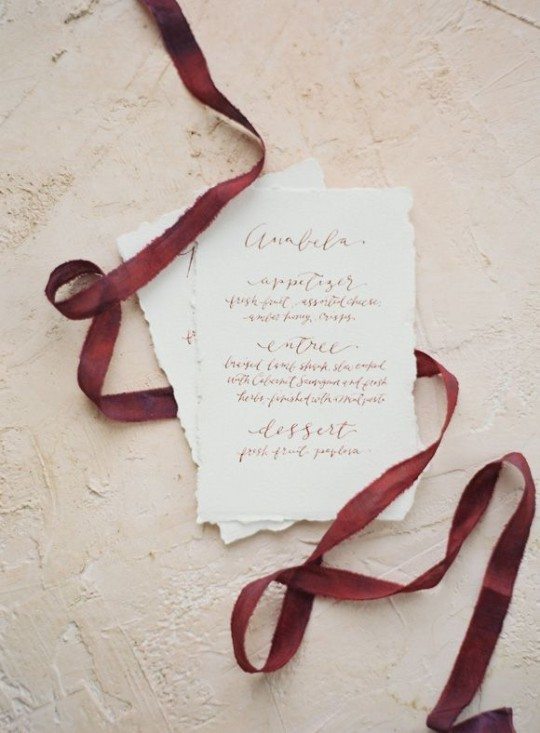 Anabela.
appetizer
fresh fruit, assorted cheese,
amber honey, crisps
entree
braised lamb shank, slow cooked
with Cabernet Sauvignon and fresh
herbs finished with
dessert
fresh fruit pavlova